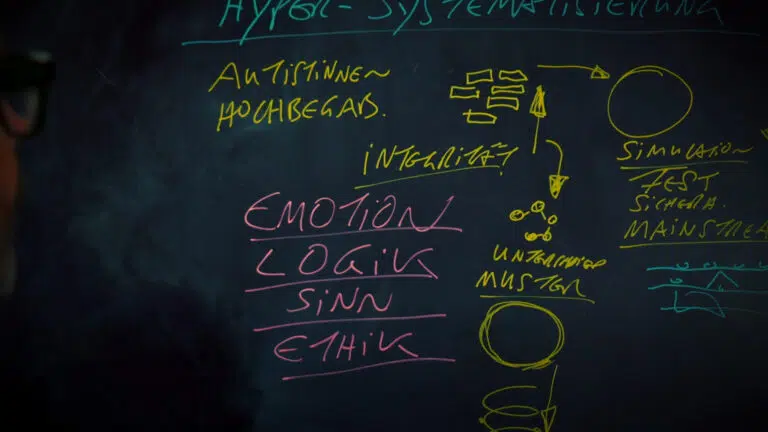 HYPER-SYSTEMATISIERUNG
AUTISTINNEN
HOCHBEGAB.
INTEGRITÄT
EMOTION
LOGIK
SINN
ETHIK
MUSTER
SIMULATION
TEST
SICHERH.
MAINSTREA